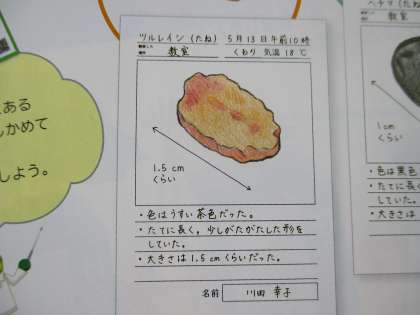 ツルレイシ(たね) 5月13日午前10時
教室 くもり 気温18℃
1.5 cm
くらい
・色はうすい茶色だった。
・たてに長く,少しがたがたした形を
していた。
・大きさは1.5 cmくらいだった。
名前 川田 幸子
ある
かめて
しよう。
ヘチマ(たね)
教室
1cm
くらい
・色は黒色
・たてに長
していた。
・大きさは